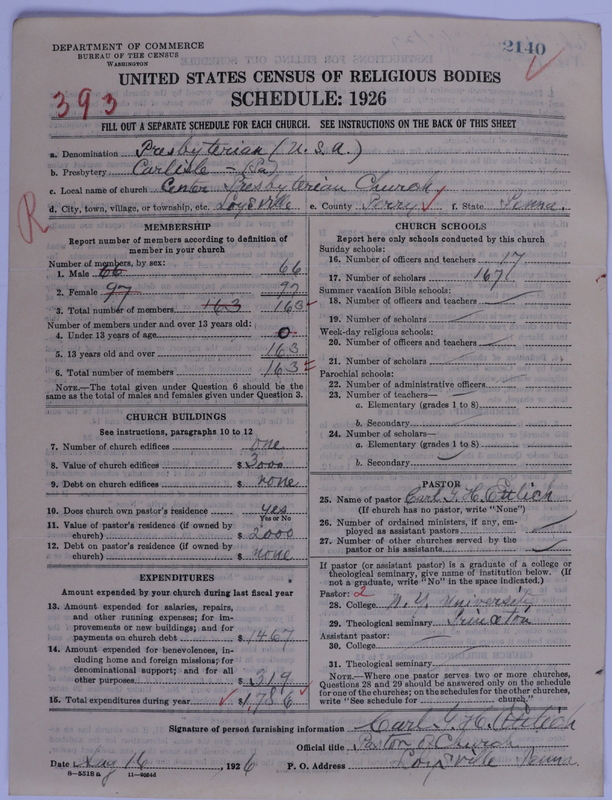 DEPARTMENT OF COMMERCE
BUREAU OF THE CENSUS
WASHINGTON
2140
UNITED STATES CENSUS OF RELIGIOUS BODIES
393
SCHEDULE: 1926
FILL OUT A SEPARATE SCHEDULE FOR EACH CHURCH. SEE INSTRUCTIONS ON THE BACK OF THIS SHEET
a. Denomination Presbyterian (U.S.A.)
b. Presbytery Carlisle - (Pa)
c. Local name of church Center Presbyterian Church
d. City, town, village, or township, etc. Loysville e. County Perry f. State Penna.
R
MEMBERSHIP
Report number of members according to definition of
member in your church
Number of members, by sex:
1. Male 66 66
2. Female 97 97
3. Total number of members 163 163
Number of members under and over 13 years old:
4. Under 13 years of age 0
5. 13 years old and over 163
6. Total number of members 163
NOTE.—The total given under Question 6 should be the
same as the total of males and females given under Question 3.
CHURCH BUILDINGS
See instructions, paragraphs 10 to 12
7. Number of church edifices one
8. Value of church edifices $ 3000
9. Debt on church edifices $ none
10. Does church own pastor's residence yes
Yes or No
11. Value of pastor's residence (if owned by
church) $ 2000
12. Debt on pastor's residence (if owned by
church) $ none
EXPENDITURES
Amount expended by your church during last fiscal year
13. Amount expended for salaries, repairs,
and other running expenses; for im-
provements or new buildings; and for
payments on church debt $ 1467
14. Amount expended for benevolences, in-
cluding home and foreign missions; for
denominational support; and for all
other purposes $ 319
15. Total expenditures during year $ 1,786
CHURCH SCHOOLS
Report here only schools conducted by this church
Sunday schools:
16. Number of officers and teachers 17
17. Number of scholars 167
Summer vacation Bible schools:
18. Number of officers and teachers
19. Number of scholars
Week-day religious schools:
20. Number of officers and teachers
21. Number of scholars
Parochial schools:
22. Number of administrative officers
23. Number of teachers—
a. Elementary (grades 1 to 8)
b. Secondary
24. Number of scholars—
a. Elementary (grades 1 to 8)
b. Secondary
PASTOR
25. Name of pastor Carl G. H. Ettlich
(If church has no pastor, write "None")
26. Number of ordained ministers, if any, em-
ployed as assistant pastors
27. Number of other churches served by the
pastor or his assistants
If pastor (or assistant pastor) is a graduate of a college or
theological seminary, give name of institution below. (If
not a graduate, write "No" in the space indicated.)
Pastor: 2
28. College N. Y. University
29. Theological seminary Princeton
Assistant pastor:
30. College
31. Theological seminary
NOTE.—Where one pastor serves two or more churches,
Questions 28 and 29 should be answered only on the schedule
for one of the churches; on the schedules for the other churches,
write "See schedule for church."
Signature of person furnishing information Carl G. H. Ettlich
Official title Pastor of Church
Date 16, 1926 P. O. Address Loysville Penna.
8—5518 a 11—9564d